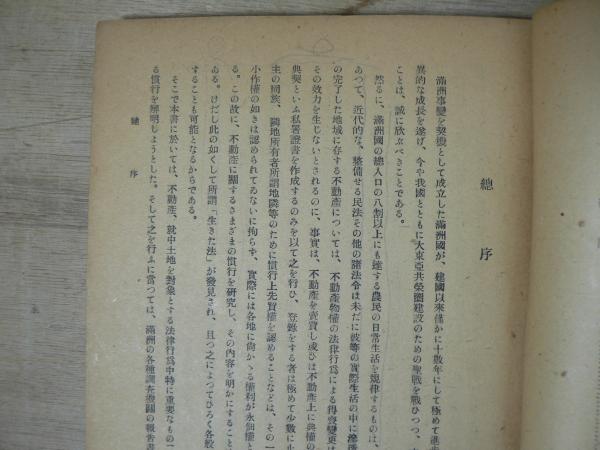 總序
滿洲事變を契機として成立した滿洲國が、建國以來僅かに十數年にして極めて進
異的な成長を遂げ、今や我國とともに大東亞共榮圈建設のための聖戰を戰ひつつ、
ことは、誠に欣ぶべきことである。
然るに、滿洲國の總人口の八割以上にも達する農民の日常生活を規律するものは、
あつて、近代的な、整備せる民法その他の諸法令は未だに彼等の實際生活の中に滲透
の完了した地域に存する不動產については、不動產物權の法律行爲による得喪變更は
その效力を生じないとされるのに、事實は、不動產を賣買し或ひは不動產上に典權の
典契といふ私署證書を作成するのみを以て之を行ひ、登錄をする者は極めて少數に止
主の同族、隣地所有者所謂地隣等のために慣行上先買權を認めることなどは、その一
小作權の如きは認められてゐないに拘らず、實際には各地に尙かゝる權利が永佃權と
る。この故に、不動產に關するさまざまの慣行を硏究し、その內容を明かにすること
ある。けだし此の如くして所謂「生きた法」が發見され、且つ之によつてひろく各般
することも可能となるからである。
そこで本書に於いては、不動產、就中土地を對象とする法律行爲中特に重要なもの一
る慣行を解明しようとした。そして之を行ふに當つては、滿洲の各種調查機關の報告書
總序